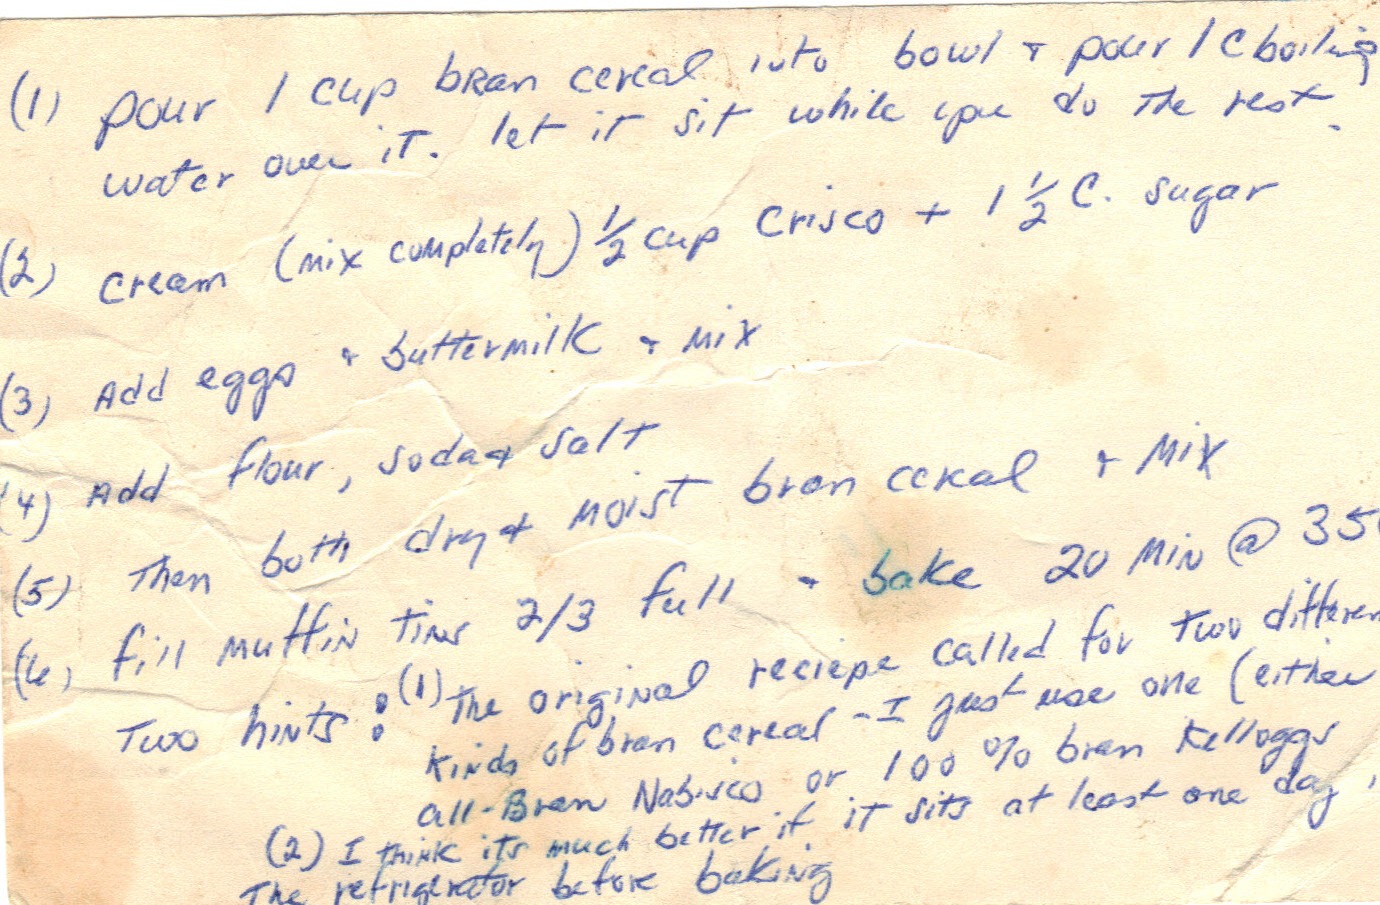 (1) pour 1 cup bran cereal into bowl + pour 1 C boiling
water over it. let it sit while you do the rest.
(2) cream (mix completely) 1/2 cup Crisco + 1 1/2 C. sugar
(3) Add eggs + buttermilk + mix
(4) Add flour, soda + salt
(5) Then both dry + moist bran cereal + mix
(6) fill muffin tins 2/3 full + bake 20 min @ 35
Two hints: (1) The original reciepe called for two differen
kinds of bran cereal - I just use one (either
all-Bran Nabisco or 100% bran Kelloggs
(2) I think its much better if it sits at least one day i
The refrigerator before baking